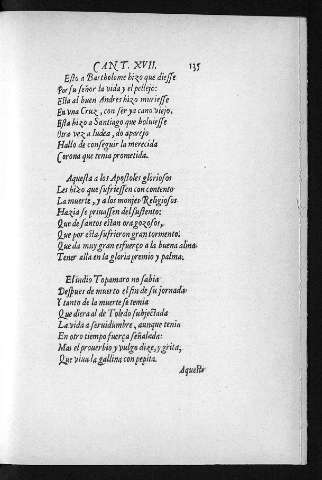 CANT. XVII. 135
Esto a Bartholome hizo que diesse
Por su señor la vida y el pellejo:
Esta al buen Andres hizo muriesse
En vna Cruz, con ser ya cano viejo,
Esta hizo a Santiago que boluiesse
Otra vez a Iudea, do aparejo
Hallo de conseguir la merecida
Corona que tenia prometida.
Aquesta a los Apostoles gloriosos
Les hizo que sufriessen con contento
La muerte, y a los monjes Religiosos
Hazia se priuassen del sustento:
Que de santos estan ora gozosos,
Que por esta sufrieron gran tormento:
Que da muy gran esfuerço a la buena alma
Tener alla en la gloria premio y palma.
El indio Topamaro no sabia
Despues de muerto el fin de su jornada
Y tanto de la muerte se temia
Que diera al de Toledo subjectada
La vida a seruidumbre, aunque tenia
En otro tiempo fuerça señalada:
Mas el prouerbio y vulgo dize, y grita,
Que viua la gallina con pepita.
Aquesta